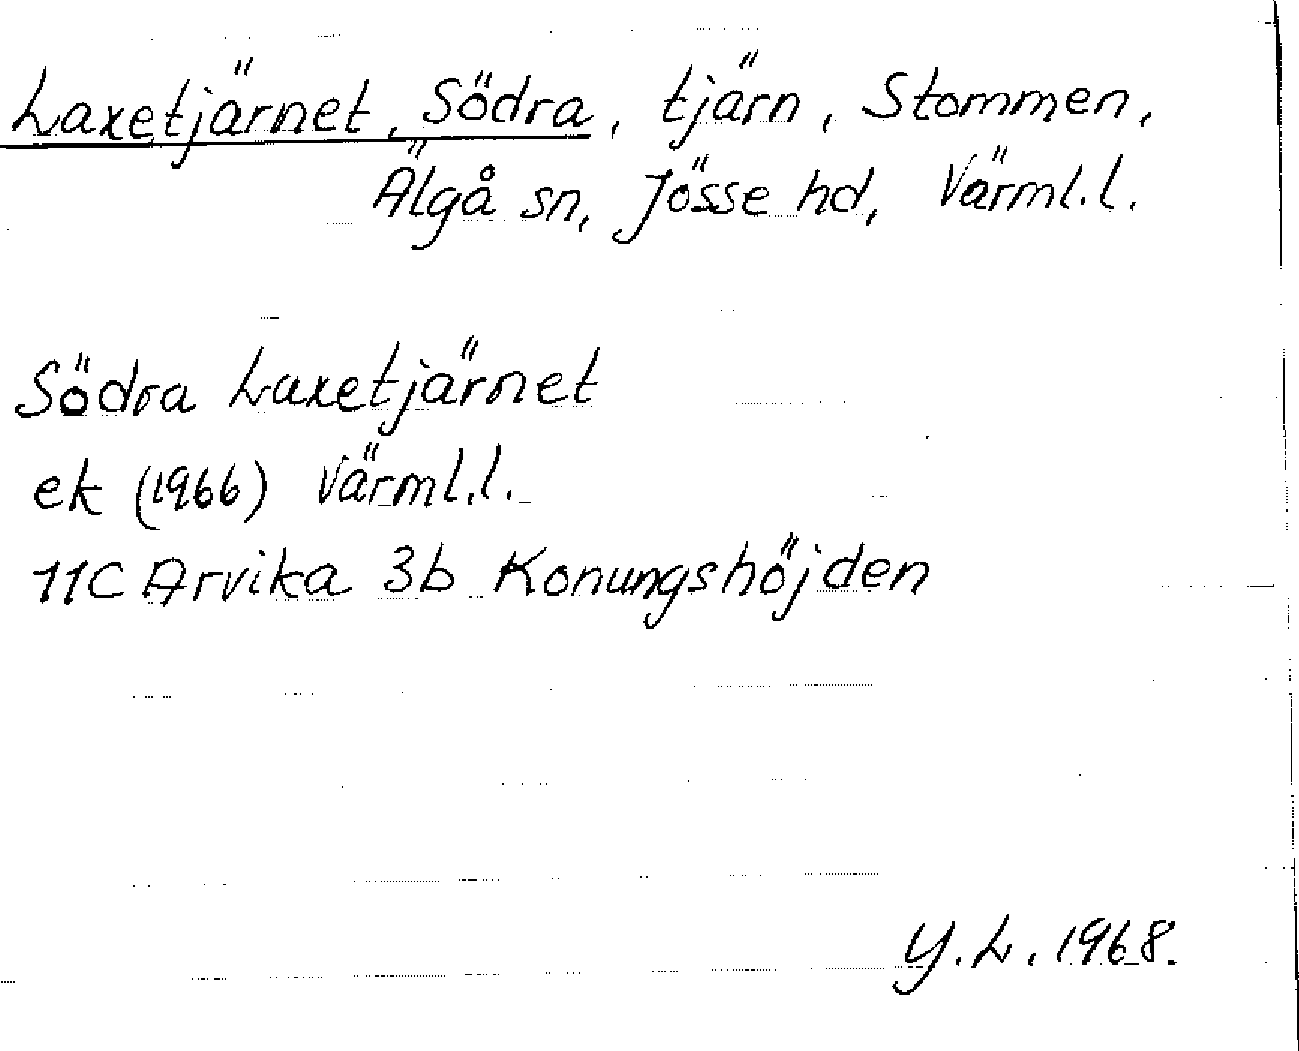 Laxetjärnet, Södra, tjärn, Stommen,
Älgå sn, Jösse hd, Värml.l.
Södra Laxetjärnet
ek (1966) Värml.l.
11C Arvika 3b Konungshöjden
Y.L. 1968.